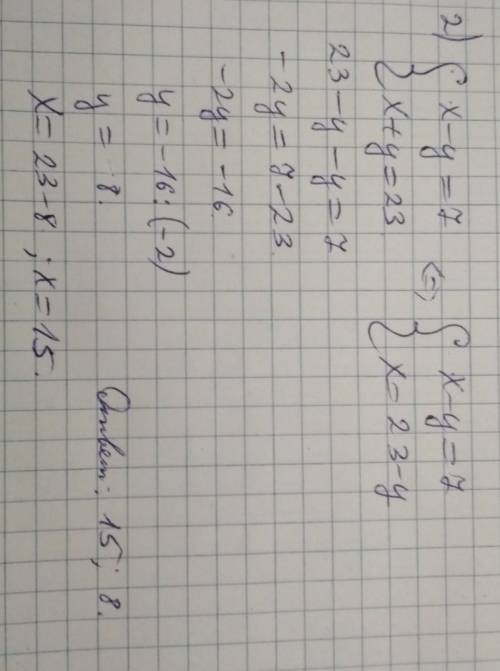 2) { x-y=7 <=> { x-y=7
x+y=23 x=23-y
23-y-y=7
-2y=7-23.
-2y=-16.
y=-16:(-2)
y= 8.
x=23-8 ; x=15.
Ответ: 15; 8.